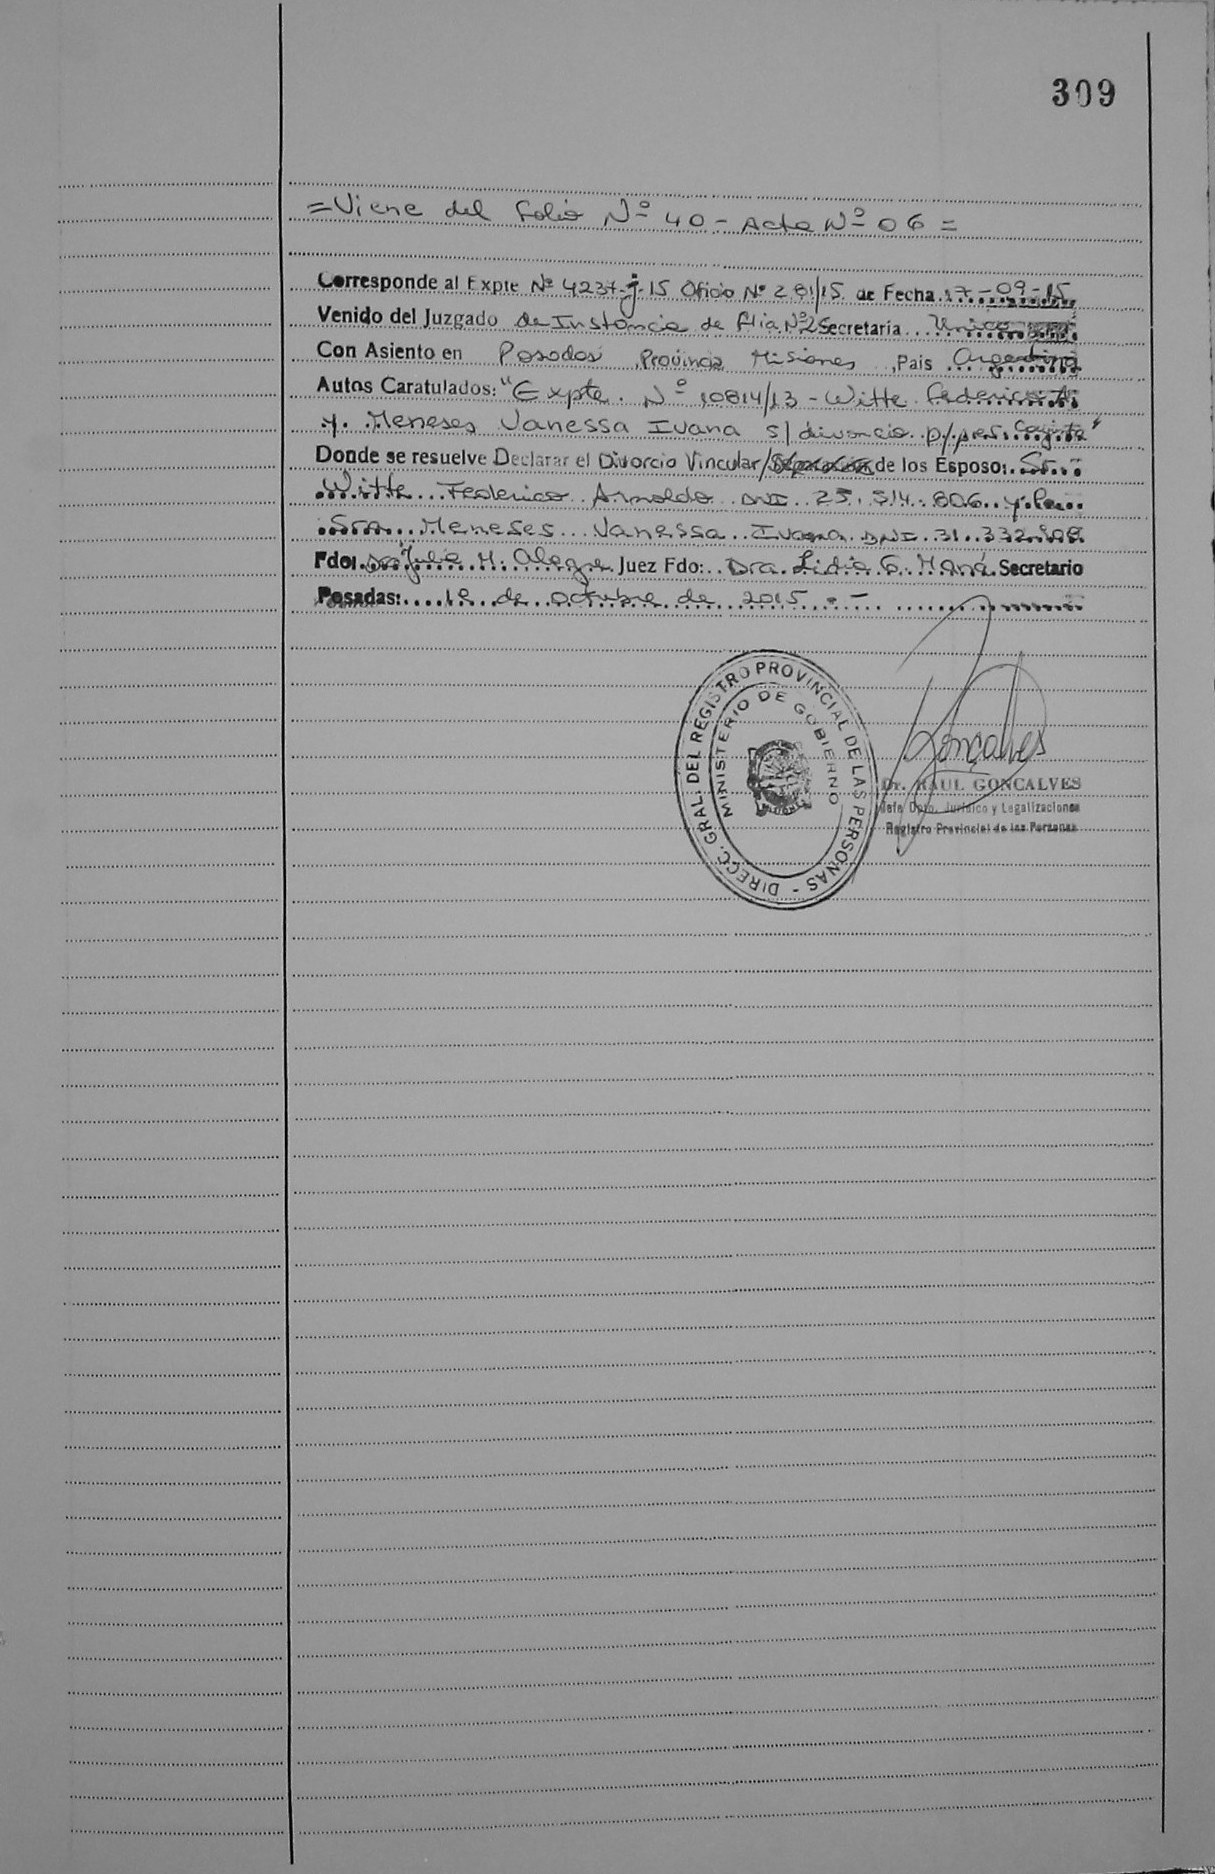 309
=Viene del folio Nº 40 - Acta Nº 06 =
Corresponde al Expte Nº 4237-j-15 Oficio Nº 281/15 de Fecha 17-09-15
Venido del Juzgado de Instancia de flia. Nº2 Secretaria Unica
Con Asiento en Posadas Provincia Misiones, Pais Argentina
Autos Caratulados: "Expte. Nº 10814/13 - Witte Federico A.
y. Meneses Vanessa Ivana s/ divorcio p/pres. Conjunta"
Donde se resuelve Declarar el Divorcio Vincular/ de los Esposo: Sr.
Witte Federico Arnoldo DNI 25.314.806 y la
Sra. Meneses Vanessa Ivana DNI 31.332.
Fdo: Julia M. Alegre Juez Fdo: Dra. Lidia Secretario
Posadas: de octubre de 2015.-
DIRECC. GRAL. DEL REGISTRO PROVINCIAL DE LAS PERSONAS -
MINISTERIO DE GOBIERNO
MISIONES
Goncalves
Dr. RAUL GONCALVES
Jefe Dpto. Jurídico y Legalizaciones
Registro Provincial de las Personas